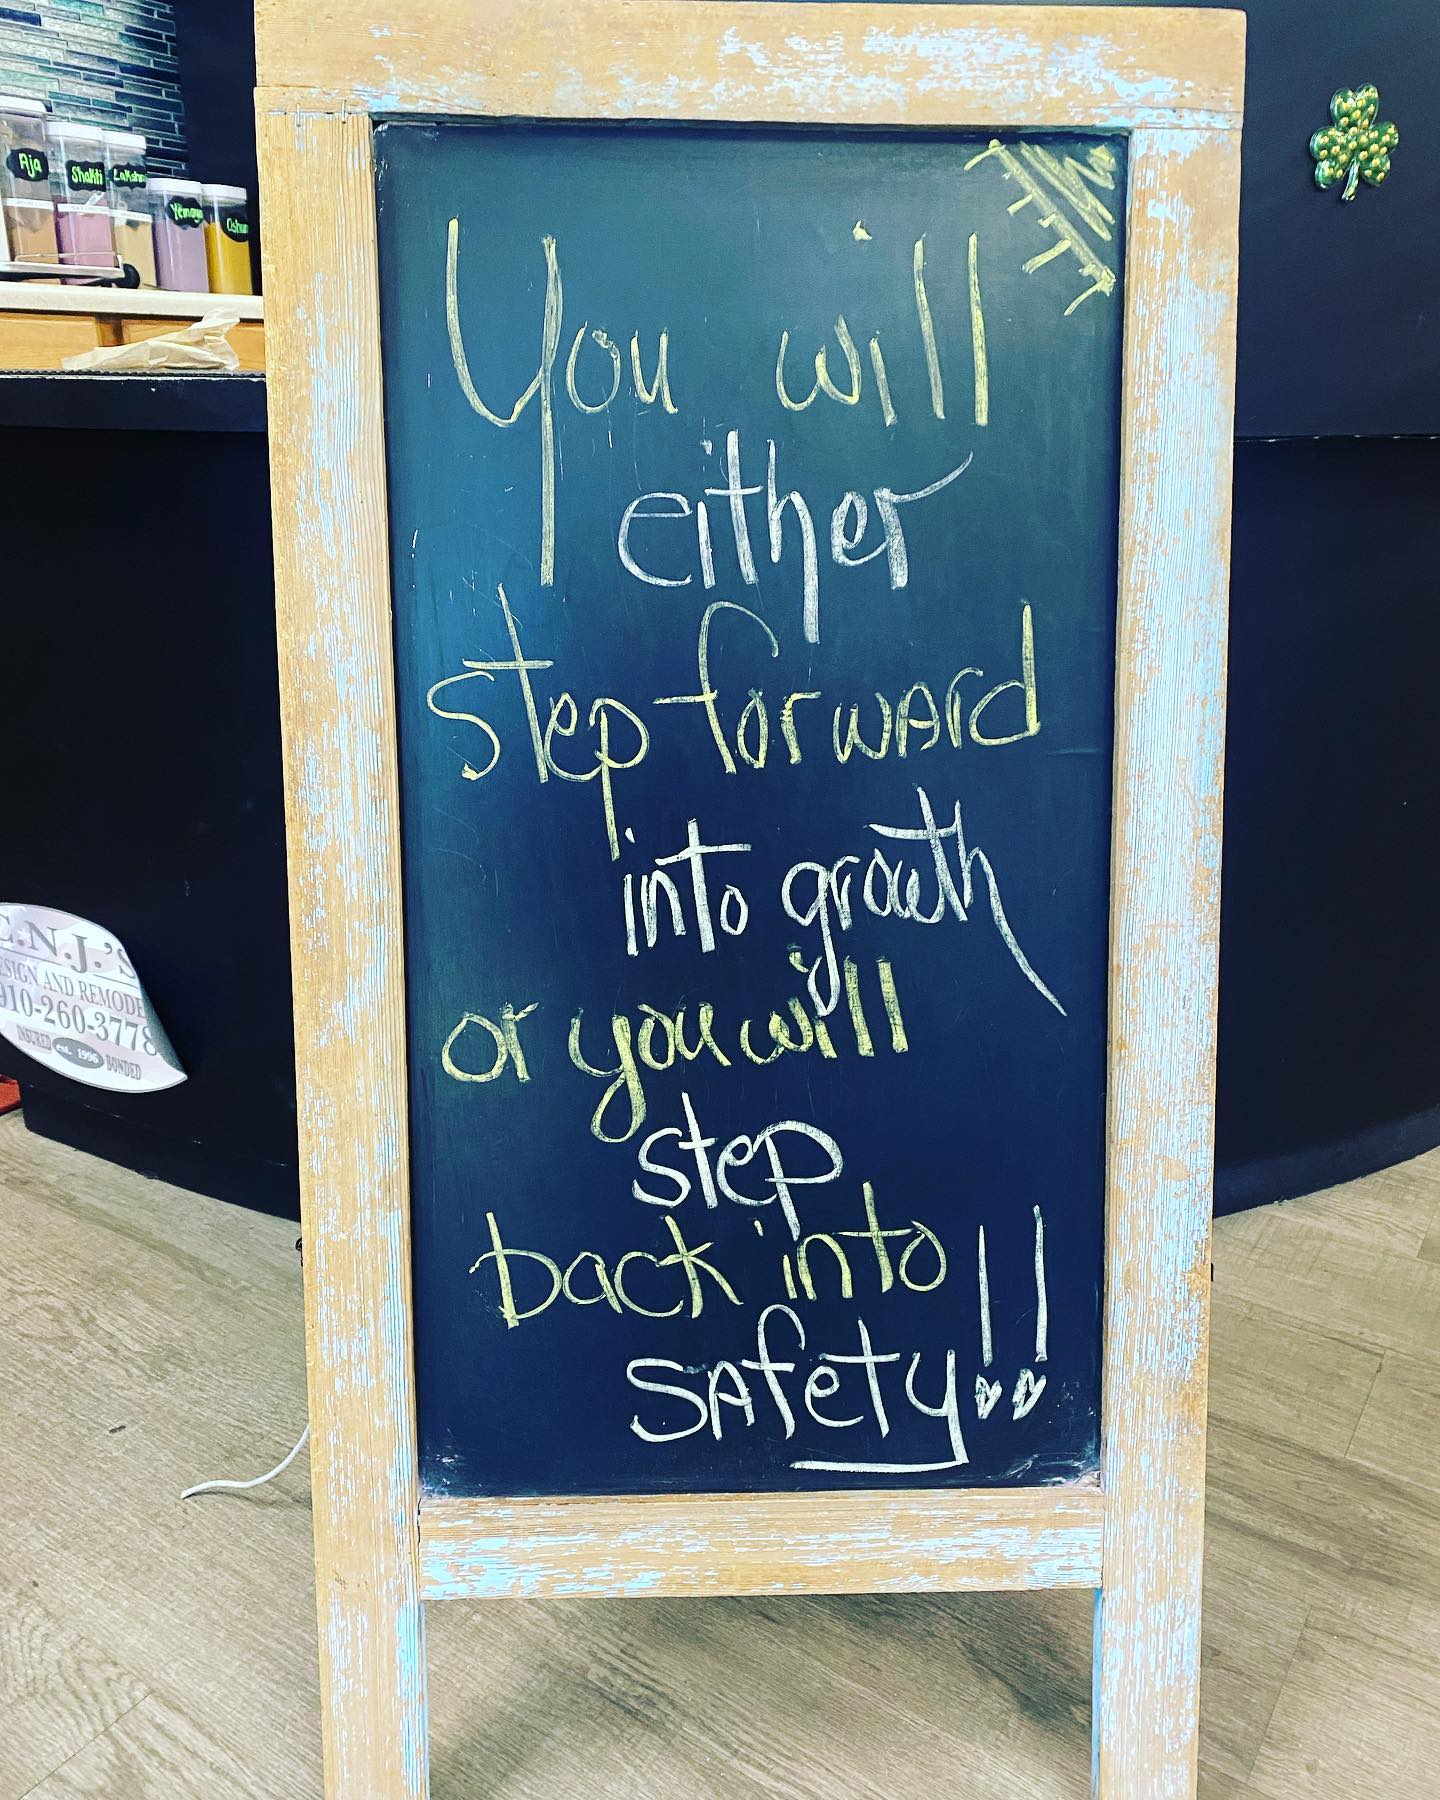 Aja
Shakti
Lakshmi
Yemaya
Oshun
You will
either
step forward
into growth
or you will
step
back into
safety!!
E.N.J.'S
DESIGN AND REMODE
910-260-3778
INSURED est. 1996 BONDED